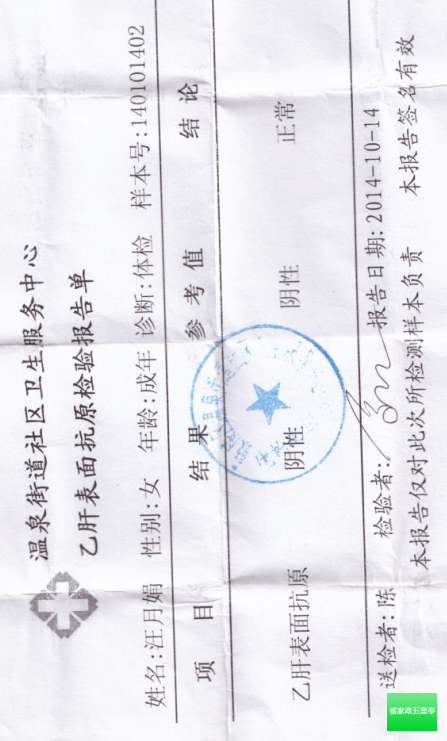 温泉街道社区卫生服务中心
乙肝表面抗原检验报告单
姓名:汪月娟 性别:女 年龄:成年 诊断:体检 样本号:140101402
项 目 结果 参考值 结 论
乙肝表面抗原 阴性 阴性 正常
送检者:陈 检验者: 报告日期:2014-10-14
本报告仅对此次所检测样本负责 本报告签名有效
省家政五里亭